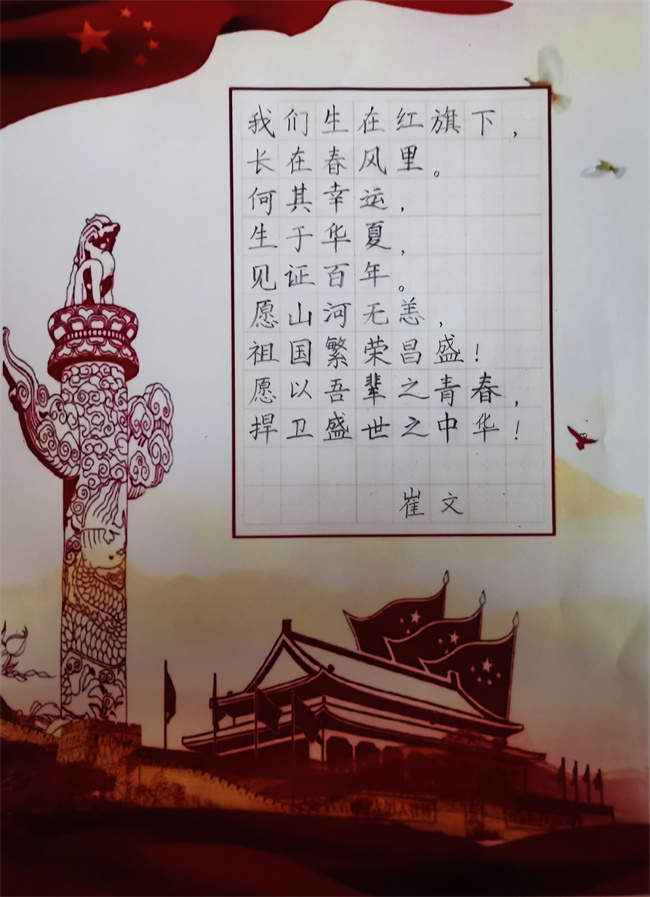 我们生在红旗下，
长在春风里。
何其幸运，
生于华夏，
见证百年。
愿山河无恙，
祖国繁荣昌盛！
愿以吾辈之青春，
捍卫盛世之中华！
崔文